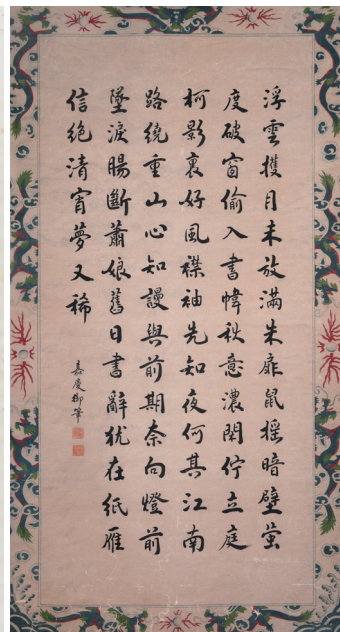 浮雲擭月未放滿朱扉鼠摇暗壁螢
度破窗偷入書幃秋意濃閑佇立庭
柯影裏好風襟袖先知夜何其江南
路繞重山心知謾與前期奈向燈前
墜淚腸斷蕭娘舊日書辭猶在紙雁
信絕清宵夢又稀
嘉慶御筆